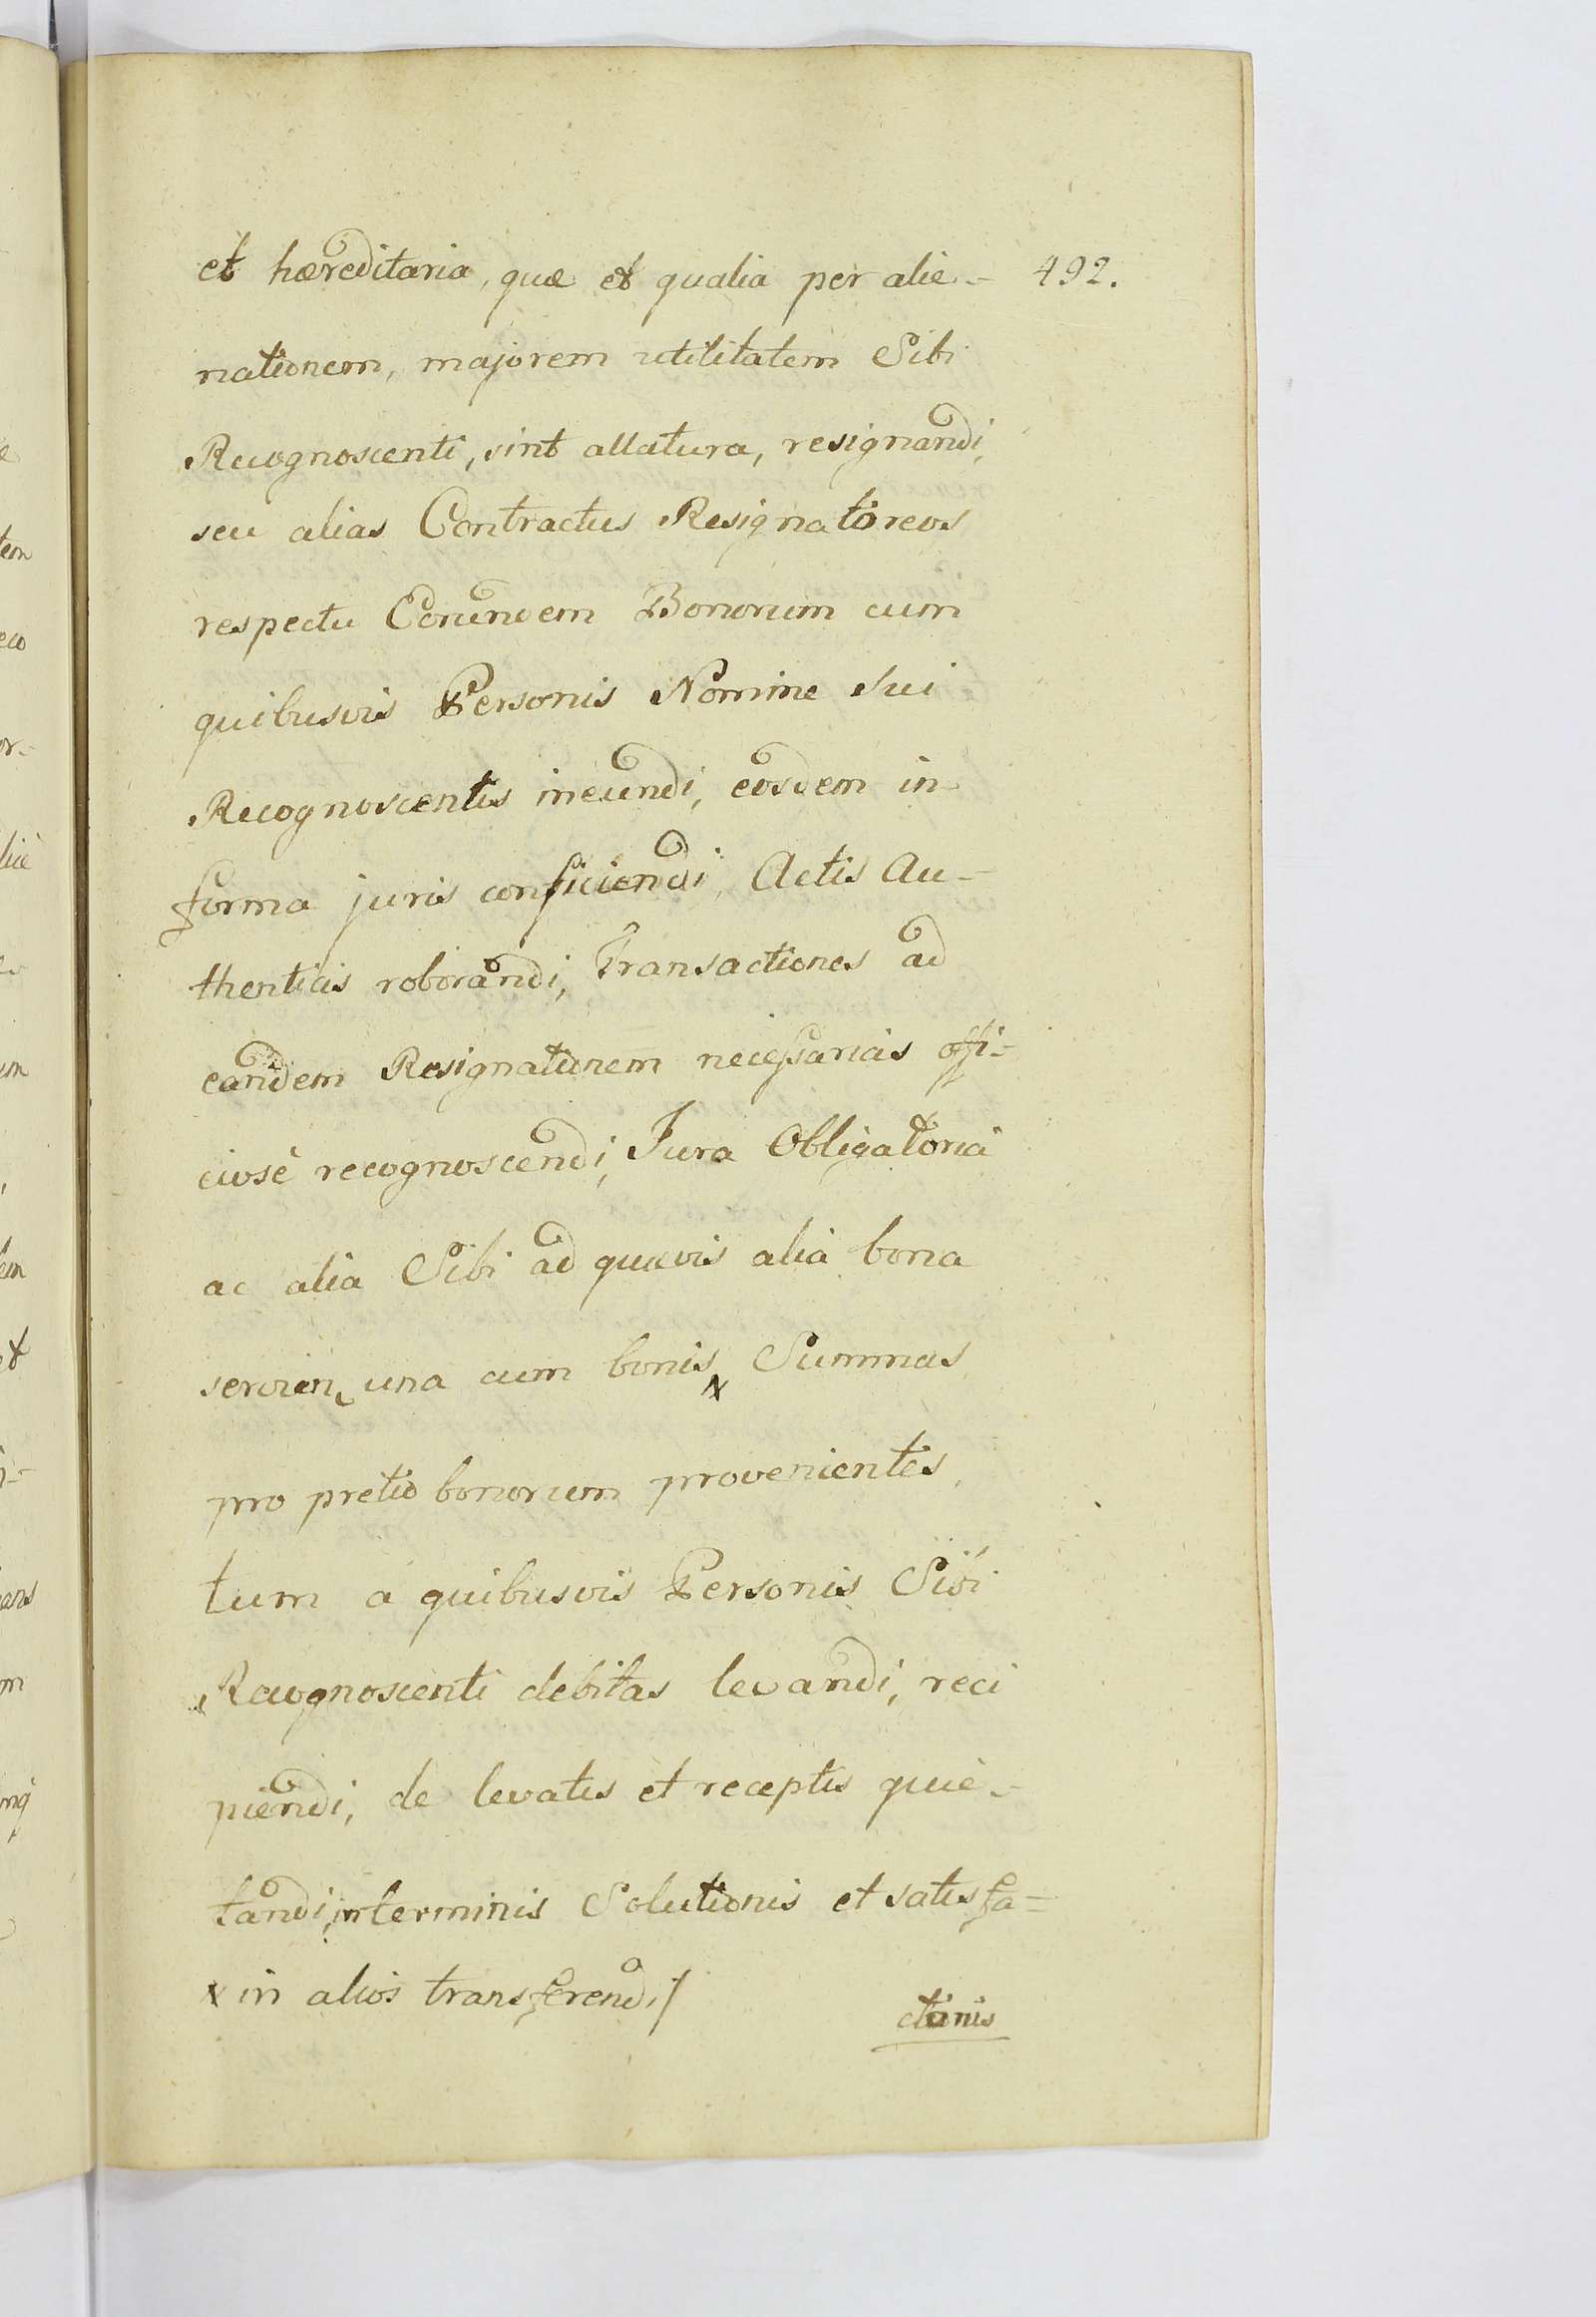 et hæreditaria, quæ et qualia per alie- 492.
nationem, majorem utilitatem Sibi
Recognoscenti, sint allatura, resignandi,
seu alias Contractus Resignatoreos
respectu Eorundem Bonorum cum
quibusvis Personis Nomine sui
Recognoscentis ineundi, eosdem in
forma juris conficiendi, Actis Au-
thenticis roborandi, Transactiones ad
eandem Resignationem necessarias offi-
ciosè recognoscendi, Jura Obligatoria
ac alia Sibi ad quævis alia bona
servien, una cum bonis x Summas
pro pretio bonorum provenientes,
tum a quibusvis Personis Sibi
Recognoscenti debitas levandi, reci
piendi, de levatis et receptis quie-
tandi, in terminis Solutionis et satisfa-
x in alios transferendi /
ctionis